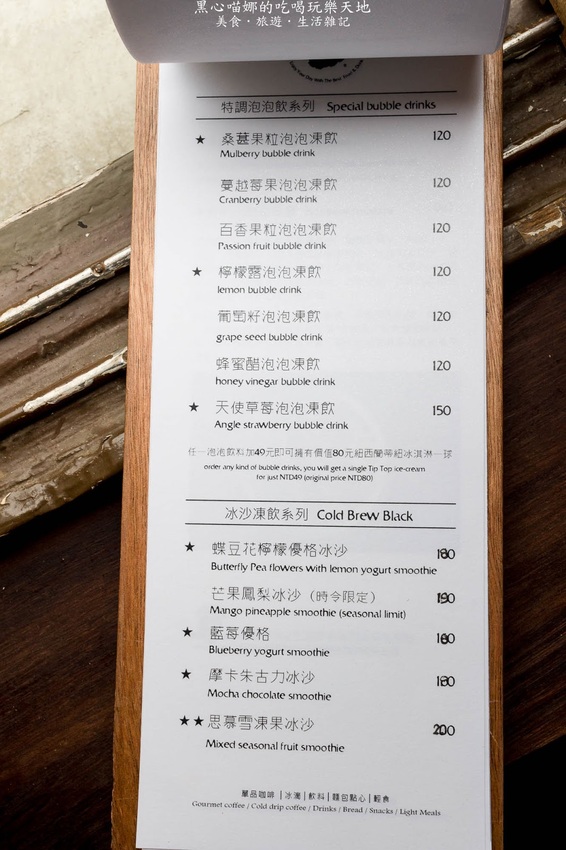 黑心喵娜的吃喝玩樂天地
美食・旅遊・生活雜記
特調泡泡飲系列 Special bubble drinks
★ 桑葚果粒泡泡凍飲 120
Mulberry bubble drink
蔓越莓果泡泡凍飲 120
Cranberry bubble drink
百香果粒泡泡凍飲 120
Passion fruit bubble drink
★ 檸檬露泡泡凍飲 120
lemon bubble drink
葡萄籽泡泡凍飲 120
grape seed bubble drink
蜂蜜醋泡泡凍飲 120
honey vinegar bubble drink
★ 天使草莓泡泡凍飲 150
Angle strawberry bubble drink
任一泡泡飲料加49元即可擁有價值80元紐西蘭蒂紐冰淇淋一球
order any kind of bubble drinks, you will get a single Tip Top ice-cream
for just NTD49 (original price NTD80)
冰沙凍飲系列 Cold Brew Black
★ 蝶豆花檸檬優格冰沙
Butterfly Pea flowers with lemon yogurt smoothie
芒果鳳梨冰沙（時令限定）
Mango pineapple smoothie (seasonal limit)
★ 藍莓優格
Blueberry yogurt smoothie
★ 摩卡朱古力冰沙
Mocha chocolate smoothie
★★ 思慕雪凍果冰沙 200
Mixed seasonal fruit smoothie
單品咖啡│冰滴│飲料│麵包點心│輕食
Gourmet coffee / Cold drip coffee / Drinks / Bread / Snacks / Light Meals